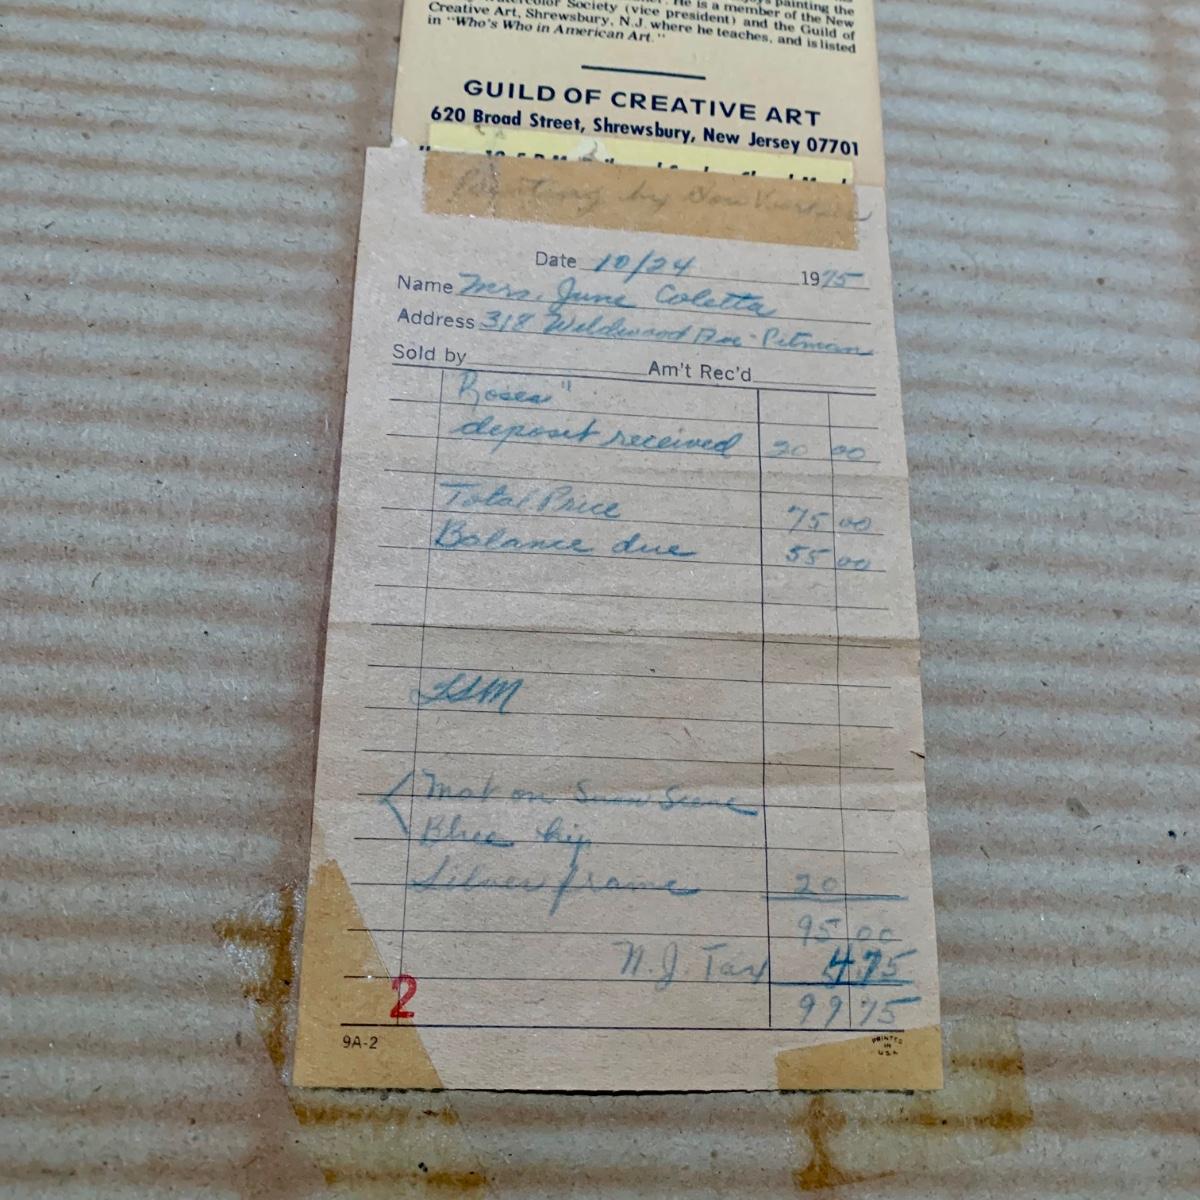 painting the
Watercolor Society (vice president) and the Guild of
He is a member of the New
Creative Art, Shrewsbury, N.J. where he teaches, and is listed
in "Who's Who in American Art."
GUILD OF CREATIVE ART
620 Broad Street, Shrewsbury, New Jersey 07701
Painting by Don
Date 10/24 1975
Name Mrs. June Coletta
Address 318 Wildwood Ave - Pitman
Sold by Am't Rec'd
Roses"
deposit received 20 00
Total Price 75 00
Balance due 55 00
Mat on Scene
Blue
Silver frame 20
95 00
N.J. Tax 4 75
99 75
2
9A-2
PRINTED
IN
U.S.A.